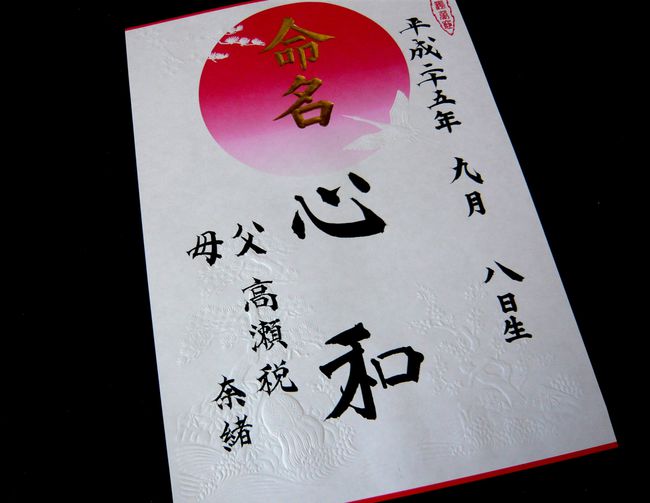 平成二十五年 九月 八日生
命名
心和
父 高瀬税
母 奈緒